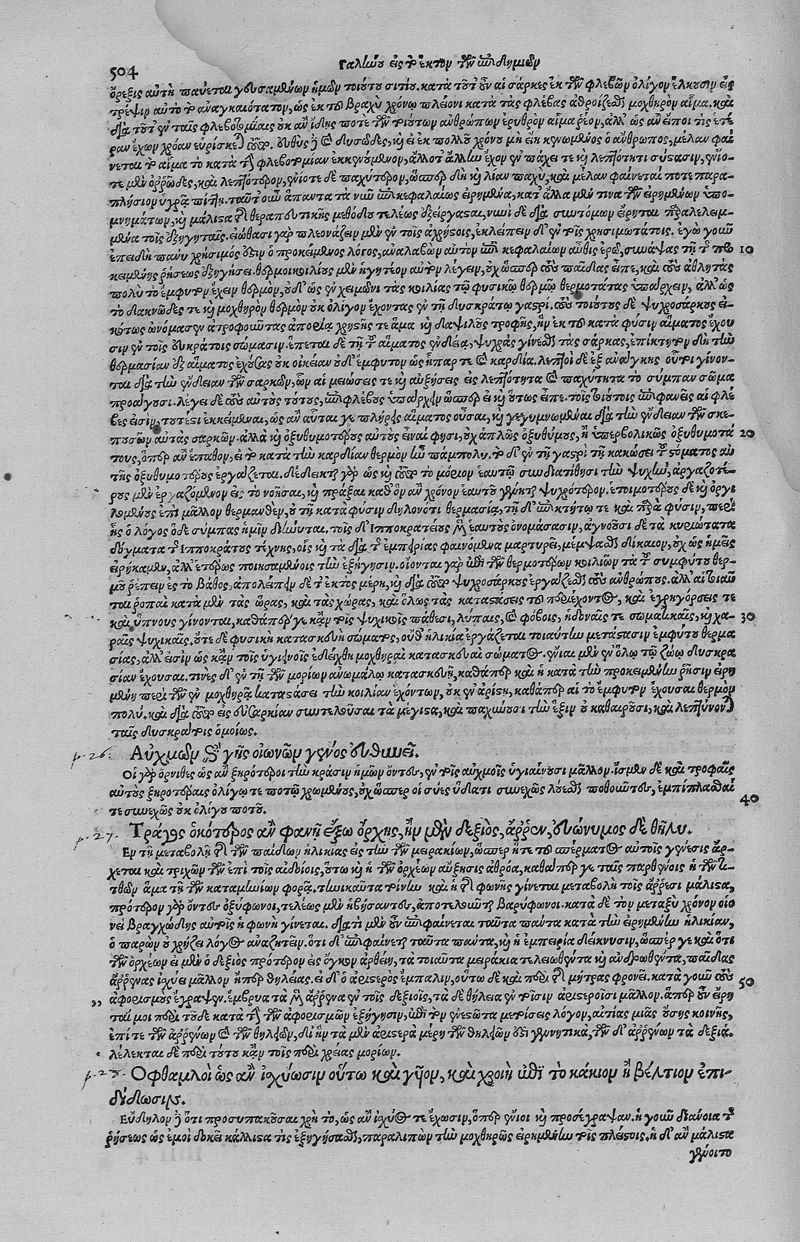 504 Γαλίνου εἰς τὸ ἕκτον τῶν ἐπιδημιῶν
ὄρεξις αὐτὴ παύεται γευσαμένων ἡμῶν τοιούτου σιτίου. κατὰ τοῦτ' οὖν αἱ σάρκες ἐκ τῶν φλεβῶν ὀλίγον ἕλκουσιν εἰς
τρέψιν αὐτὸ τὸ ἀναγκαιότατον, ὡς ἐκ τοῦ βραχὺ χρόνῳ πλείονι κατὰ τὰς φλέβας ἀθροίζεσθαι μοχθηρὸν αἷμα. καὶ
διὰ τοῦτ' ἐν ταῖς φλεβοτομίαις οὐκ ἂν ἴδῃς ποτὲ τῶν τοιούτων ἀνθρώπων ἐρυθρὸν αἷμα ῥέον, ἀλλ' ὡς ἂν εἴποι τις ἑτέ
ραν ἔχων χρόαν εὑρίσκεται
νεται τὸ αἷμα τὸ κατὰ τὴν φλεβοτομίαν ἐκκενούμενον, ἄλλοτ' ἄλλην ἔχον ἐν πάχει τε καὶ λεπτότητι σύστασιν, ἐνίο
τε μὲν ὀρρῶδες, καὶ λεπτότερον, ἐνίοτε δὲ παχύτερον, ὥσπερ δὴ καὶ λίαν παχύ, καὶ μέλαν φαίνεται ποτε παρα
πλήσιον ὑγρᾷ πίσσῃ. ταῦτ' οὖν ἅπαντα τὰ νῦν ἐπὶ κεφαλαίως εἰρημένα, κατ' ἄλλα μέν τινα τῶν εἰρημένων ὑπο
μνημάτων, καὶ μάλιστα τῆς θεραπευτικῆς μεθόδου τελέως ἐξείργασται, νυνὶ δὲ διὰ συντόμων εἴρηται παραλελειμ
μένα τοῖς ἐξηγηταῖς. εἰώθασι γὰρ πλεονάζειν μὲν ἐν τοῖς ἀχρήστοις, ἐκλείπειν δ' ἐν τοῖς χρησιμωτάτοις. ἐγὼ γοῦν
ἐπειδὴ πάνυ χρήσιμός ἐστιν ὁ προκείμενος λόγος, ἀναλαβὼν αὐτὸν ἐπὶ κεφαλαίων αὖθις ἐρῶ, συνάψας τῇ τοῦ προ 10
κειμένης ῥήσεως ἐξηγήσει. θερμοκοιλίους μὲν ἡγητέον αὐτὸν λέγειν, οὐχ ὥσπερ τοὺς παῖδας εἶπε, καὶ τοὺς ἀθλητὰς
πολὺ τὸ ἔμφυτον ἔχειν θερμόν, οὐδ' ὡς ἐν χειμῶνι τὰς κοιλίας τῷ φυσικῷ θερμῷ θερμοτάτας ὑπάρχειν, ἀλλ' ὡς
τὸ δακνῶδές τε καὶ μοχθηρὸν θερμὸν οὐκ ὀλίγον ἔχοντας ἐν τῇ δυσκράτῳ γαστρί. τοὺς τοιούτους δὲ ψυχροσάρκους εἰ
κότως ὠνόμασεν ἀτροφοῦντας ἀπορίᾳ χρηστῆς τε ἅμα καὶ δαψιλοῦς τροφῆς, ἣν ἐκ τοῦ κατὰ φύσιν αἵματος ἔχου
σιν ἐν τοῖς εὐκράτοις σώμασιν. ἕπεται δὲ τῇ τοῦ αἵματος ἐνδείᾳ, ψυχρὰς γίνεσθαι τὰς σάρκας, ἐπίκτητον δὴ τὴν
θερμασίαν ἐξ αἵματος ἐχούσας οὐκ οἰκείαν οὐδ' ἔμφυτον ὡς ἧπάρ τε καὶ καρδία. λεπτοὶ δὲ ἐξ ἀνάγκης οὗτοι γίνον
ται διὰ τὴν ἔνδειαν τῶν σαρκῶν, ὧν αἱ μειώσεις τε καὶ αὐξήσεις εἰς λεπτότητα καὶ παχύτητα τὸ σύμπαν σῶμα
προάγουσι. λέγει δὲ τοὺς αὐτοὺς τούτους, ἐπιφλέβους ὑπάρχειν ὥσπερ εἰ καὶ οὕτως εἶπε. τοῖς τοιούτοις ἐπιφανεῖς αἱ φλέ
βες εἰσίν, τουτέστι ἐκκείμεναι, ὡς ἂν αὗταί γε πλήρεις αἵματος οὖσαι, καὶ γεγυμνωμέναι διὰ τὴν ἔνδειαν τῶν σκε
πουσῶν αὐτὰς σαρκῶν. ἀλλὰ καὶ ὀξυθυμοτέρους αὐτοὺς εἶναί φησι, οὐχ ἁπλῶς ὀξυθύμους, ἢ ὑπερβολικῶς ὀξυθυμοτά 20
τους, ὅπερ ἂν ἔπαθον, εἰ τὸ κατὰ τὴν καρδίαν θερμὸν ἦν πάμπολυ. τὸ δ' ἐν τῇ γαστρὶ τῇ κακώσει τοῦ στόματος αὐ
τῆς ὀξυθυμοτέρους ἐργάζεται. δέδεικται γὰρ ὡς καὶ τοῦτο τὸ μόριον ἑαυτῷ συνδιατίθησι τὴν ψυχήν, ἀργαζοτέ
ρους μὲν ἐργαζόμενον εἰς τὸ νοῆσαι, καὶ πρᾶξαι καθ' ὃν ἂν χρόνον ἑαυτοῦ γένηται ψυχρότερον. ἑτοιμοτέρους δὲ καὶ ὀργι
λωμένους ἐπὶ μᾶλλον θερμανθέν, οὐ τῇ κατὰ φύσιν δηλονότι θερμασίᾳ, τῇ δ' ἐπικτήτῳ τε καὶ παρὰ φύσιν, περὶ
ἧς ὁ λόγος ὅδε σύμπας ἡμῖν δίδοται. τοῖς δ' Ἱπποκρατείους μὲν ἑαυτοὺς ὀνομάσασιν, ἀγνοοῦσι δὲ τὰ κυριώτατα
δόγματα τῆς Ἱπποκράτους τέχνης, οἷς καὶ τὰ διὰ τῆς ἐμπειρίας φαινόμενα μαρτυρεῖ, μέμψασθαι δίκαιον, οὐχ ὡς ἡμεῖς
εἰρήκαμεν, ἀλλ' ἑτέρως ποιησαμένοις τὴν ἐξήγησιν. οἴονται γὰρ ἐπὶ τῶν θερμοτέρων κοιλιῶν τὰ τοῦ ἐμφύτου θερ
μοῦ ῥέπειν εἰς τὸ βάθος, ἀπολείπειν δὲ τὰ ἐκτὸς μέρη, καὶ διὰ τοῦτο ψυχροσάρκους ἐργάζεσθαι τοὺς ἀνθρώπους. ἀλλ' αἱ τοιαῦ
ται ῥοπαὶ κατὰ μὲν τὰς ὥρας, καὶ τὰς χώρας, καὶ ὅλως τὰς καταστάσεις τοῦ περιέχοντος, καὶ ἐγρηγόρσεις τε
καὶ ὕπνους γίνονται, καθάπερ γε κἀν τοῖς ψυχικοῖς πάθεσι, λύπαις, καὶ φόβοις, ἡδοναῖς τε σωματικαῖς, καὶ χα 30
ραῖς ψυχικαῖς. οὔτε δὲ φυσικὴ κατασκευὴ σώματος, οὔθ' ἡλικία ἐργάζεται τοιαύτην μετάστασιν ἐμφύτου θερμα
σίας, ἀλλ' εἰσὶν ὡς κἀν τοῖς ὑγιεινοῖς ἐδείχθη μοχθηραὶ κατασκευαὶ σώματος. ἔνιαι μὲν ἐν ὅλῳ τῷ ζώῳ δυσκρα
σίαν ἔχουσαι. τινὲς δ' ἐν τῇ τῶν μορίων ἀνωμάλῳ κατασκευῇ, καθάπερ καὶ ἡ κατὰ τὴν προκειμένην ῥῆσιν εἰρη
μένη περὶ τῶν ἐν μοχθηρᾷ καταστάσει τὴν κοιλίαν ἐχόντων, οὐκ ἐν ἀρίστῃ, καθάπερ αἱ τὸ ἔμφυτον ἔχουσαι θερμὸν
πολύ, καὶ διὰ τοῦτο εἰς εὐσαρκίαν συντελοῦσαι τὰ μέγιστα, καὶ παχύνουσι τὴν ἕξιν οὐ καθαιροῦσι, καὶ λεπτύνουσι
ταῖς δυσκράτοις ὁμοίως.
p. 26. Αὐχμῶν τῆς γῆς οἰωνῶν γένος εὐθηνεῖ.
Οἱ γὰρ ὄρνιθες ὡς ἂν ξηρότεροι τὴν κρᾶσιν ἡμῶν ὄντες, ἐν τοῖς αὐχμοῖς ὑγιαίνουσι μᾶλλον. ἴσμεν δὲ καὶ τροφαῖς
αὐτοὺς ξηροτέραις ὀλίγῳ τε ποτῷ χρωμένους, οὐχ ὥσπερ οἱ σύες ὕδατι συνεχῶς λούεσθαι ποθοῦντες, ἐμπίπλασθαί
τε συνεχῶς οὐκ ὀλίγου ποτοῦ. 40
p. 27. Τράγος ὁκότερος ἂν φανῇ ἔξω ὄρχις, ἢν μὲν δεξιὸς, ἄρρεν, εὐώνυμος δὲ θῆλυ.
Ἐν τῇ μεταβολῇ τῆς τῶν παίδων ἡλικίας εἰς τὴν μειρακίων, ὥσπερ ἥ τε τοῦ σπέρματος αὐτοῖς γένεσις ἄρ
χεται καὶ τριχῶν τῶν ἐπὶ τοῖς αἰδοίοις, οὕτω καὶ ἡ τῶν ὀρχέων αὔξησις ἀθρόα, καθάπερ γε ταῖς παρθένοις ἡ τῶν τι
τθῶν ἅμα τῇ τῶν καταμηνίων φορᾷ. τηνικαῦτα τοίνυν καὶ ἡ τῆς φωνῆς γίνεται μεταβολὴ τοῖς ἄρρεσι μάλιστα,
πρότερον γὰρ ὄντες ὀξύφωνοι, τελέως μὲν ἡβήσαντες, ἀποτελοῦνται βαρύφωνοι. κατὰ δὲ τὸν μεταξὺ χρόνον οἱο
νεὶ βραγχώδης αὐτοῖς ἡ φωνὴ γίνεται. διὰ τί μὲν οὖν ἐπιφαίνεται ταῦτα πάντα κατὰ τὴν εἰρημένην ἡλικίαν,
ὁ παρὼν οὐ χρῄζει λόγος ἀναζητεῖν. ὅτι δ' ἐπιφαίνεται ταῦτα πάντα, καὶ ἡ ἐμπειρία δείκνυσιν, ὥσπερ γε καὶ ὅτι
τῶν ὀρχέων εἰ μὲν ὁ δεξιὸς πρότερον εἰς ὄγκον ἀρθείη, τὰ τοιαῦτα μειράκια τελειωθέντα καὶ ἀνδρωθέντα, παῖδας
ἄρρενας ἰσχύει μᾶλλον ἤπερ θηλείας. εἰ δ' ὁ ἀριστερὸς ἔμπαλιν, οὕτω δὲ καὶ περὶ τῆς μήτρας φρονεῖ. κατὰ γοῦν τοὺς 50
„ ἀφορισμοὺς ἔγραψεν. ἔμβρυα τὰ μὲν ἄρρενα ἐν τοῖς δεξιοῖς, τὰ δὲ θήλεια ἐν τοῖσιν ἀριστεροῖσι μᾶλλον. ἅπερ οὖν εἴρη
ταί μοι περὶ τοῦδε κατὰ τὴν τῶν ἀφορισμῶν ἐξήγησιν, ἐπὶ τὸν ἐνεστῶτα μετοίσεις λόγον, αἰτίας μιᾶς οὔσης κοινῆς,
ἐπί τε τῶν ἀρρένων καὶ τῶν θηλειῶν, δι' ἣν τὰ μὲν ἀριστερὰ μέρη τῶν θηλειῶν ἐστι γεννητικὰ, τῶν δ' ἀρρένων τὰ δεξιά.
λέλεκται δὲ περὶ τούτου κἀν τοῖς περὶ χρείας μορίων.
p. 28. Ὀφθαλμοὶ ὡς ἂν ἰσχύωσιν οὕτω καὶ γυῖον, καὶ χροιὴ ἐπὶ τὸ κάκιον ἢ βέλτιον ἐπι-
δίδωσις.
Εὔδηλον δ' ὅτι προσυπακοῦσαι χρὴ τὸ, ὡς ἂν ἰσχύος τε ἔχωσιν, ὅπερ ἔνιοι καὶ προσέγραψαν. ἡ γοῦν διάνοια τῆς
ῥήσεως ὡς ἐμοὶ δοκεῖ κάλλιστα τῆς ἐξηγήσασθαι, παραλιπὼν τὴν μοχθηρῶς εἰρημένην τοῖς πλείστοις. ἡ δ' ἂν μάλιστα
γένοιτο